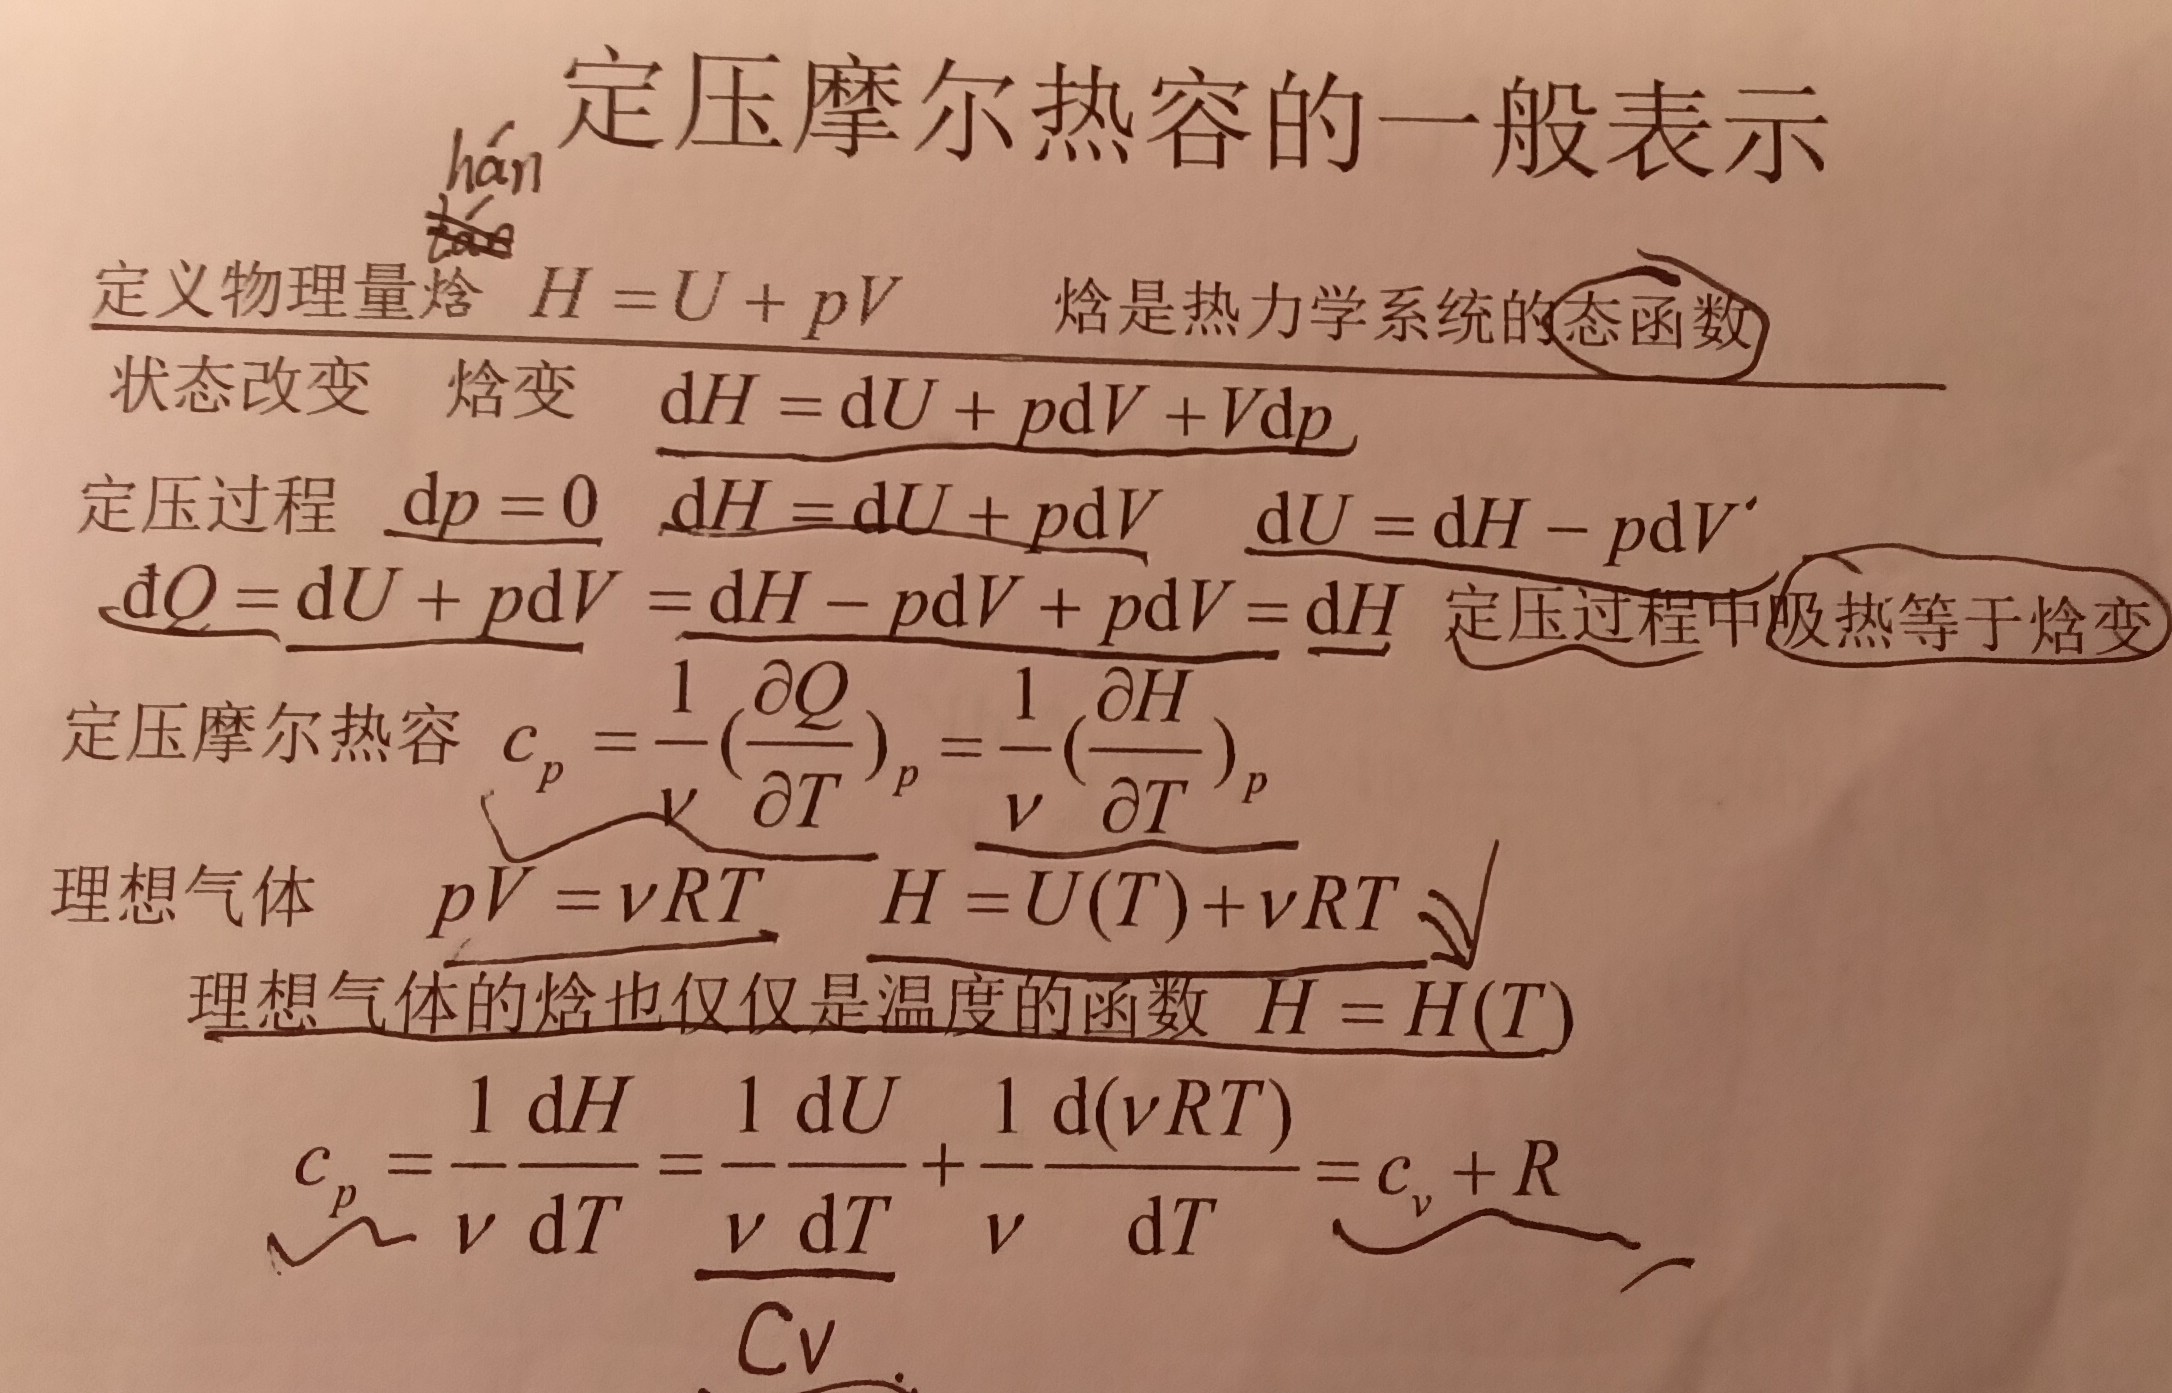 定压摩尔热容的一般表示
hán
定义物理量焓 H = U + pV 焓是热力学系统的态函数
状态改变 焓变 dH = dU + pdV + Vdp
定压过程 dp = 0 dH = dU + pdV dU = dH − pdV
đQ = dU + pdV = dH − pdV + pdV = dH 定压过程中吸热等于焓变
定压摩尔热容 c_p = 1/ν (∂Q/∂T)_p = 1/ν (∂H/∂T)_p
理想气体 pV = νRT H = U(T) + νRT
理想气体的焓也仅仅是温度的函数 H = H(T)
c_p = 1/ν dH/dT = 1/ν dU/dT + 1/ν d(νRT)/dT = c_v + R
Cv